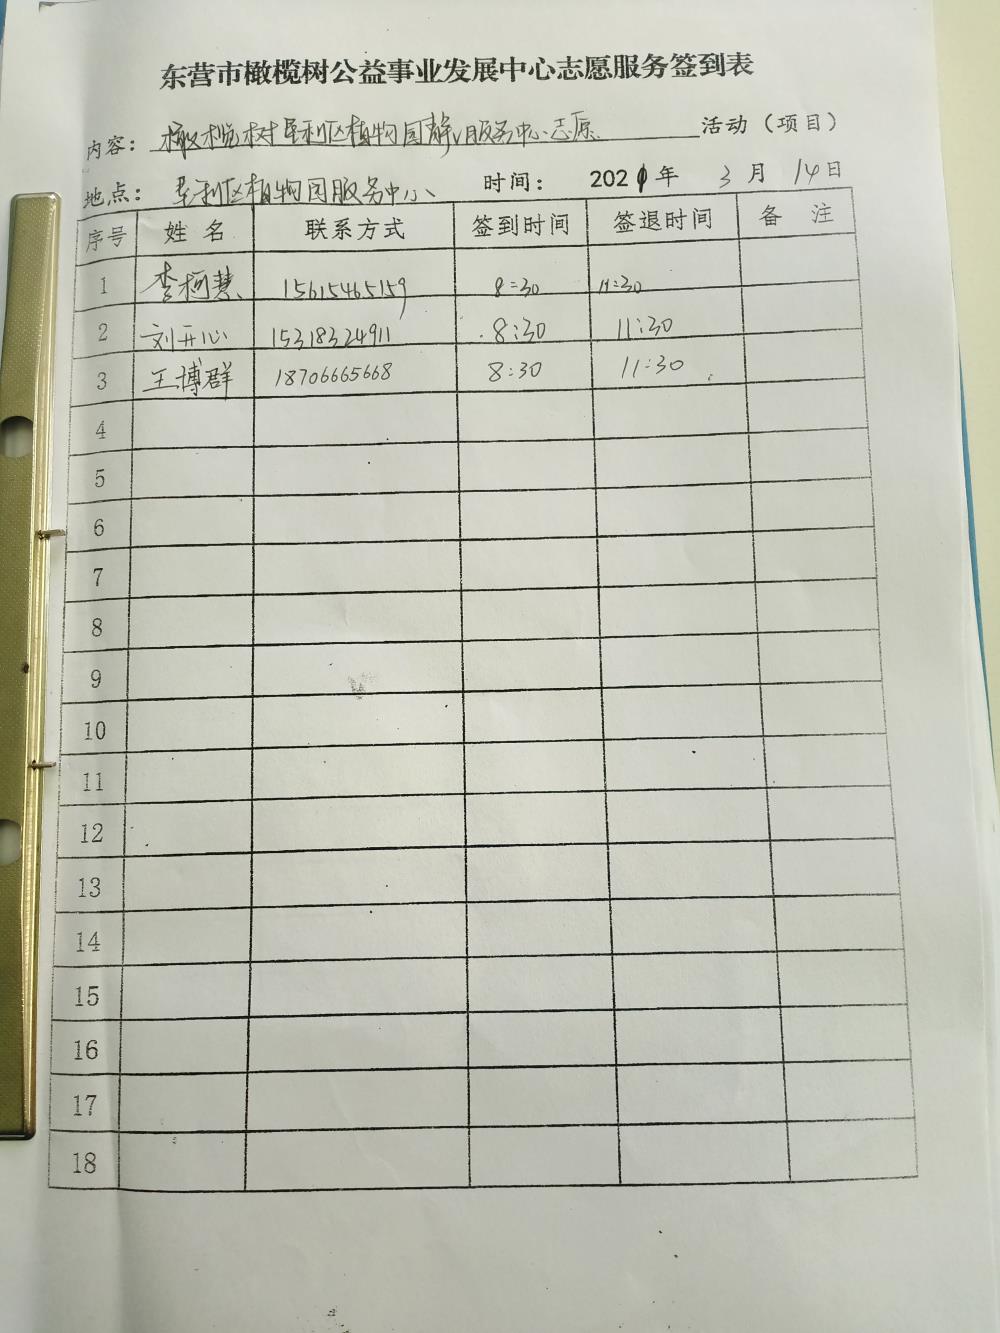 东营市橄榄树公益事业发展中心志愿服务签到表
内容：橄榄树垦利区植物园 服务中心志愿 活动（项目）
地点：垦利区植物园服务中心 时间：2021年 3月 14日
序号 姓名 联系方式 签到时间 签退时间 备注
1 李柯慧 15615465159 8:30 11:30
2 刘开心 15318324911 8:30 11:30
3 王博群 18706665668 8:30 11:30
4
5
6
7
8
9
10
11
12
13
14
15
16
17
18